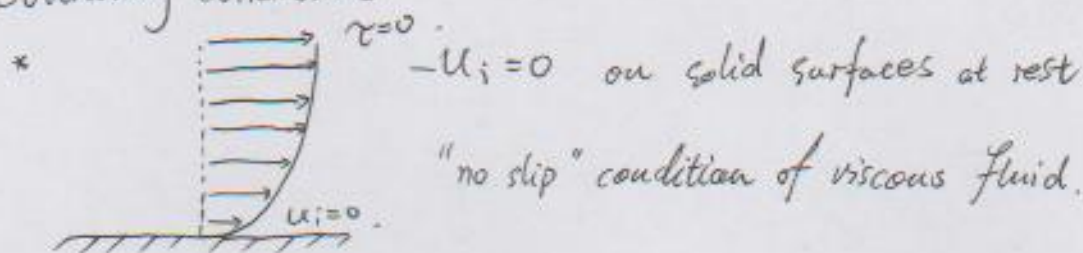 τ=0.
* -Ui=0 on solid surfaces at rest
"no slip" condition of viscous fluid.
ui=0.